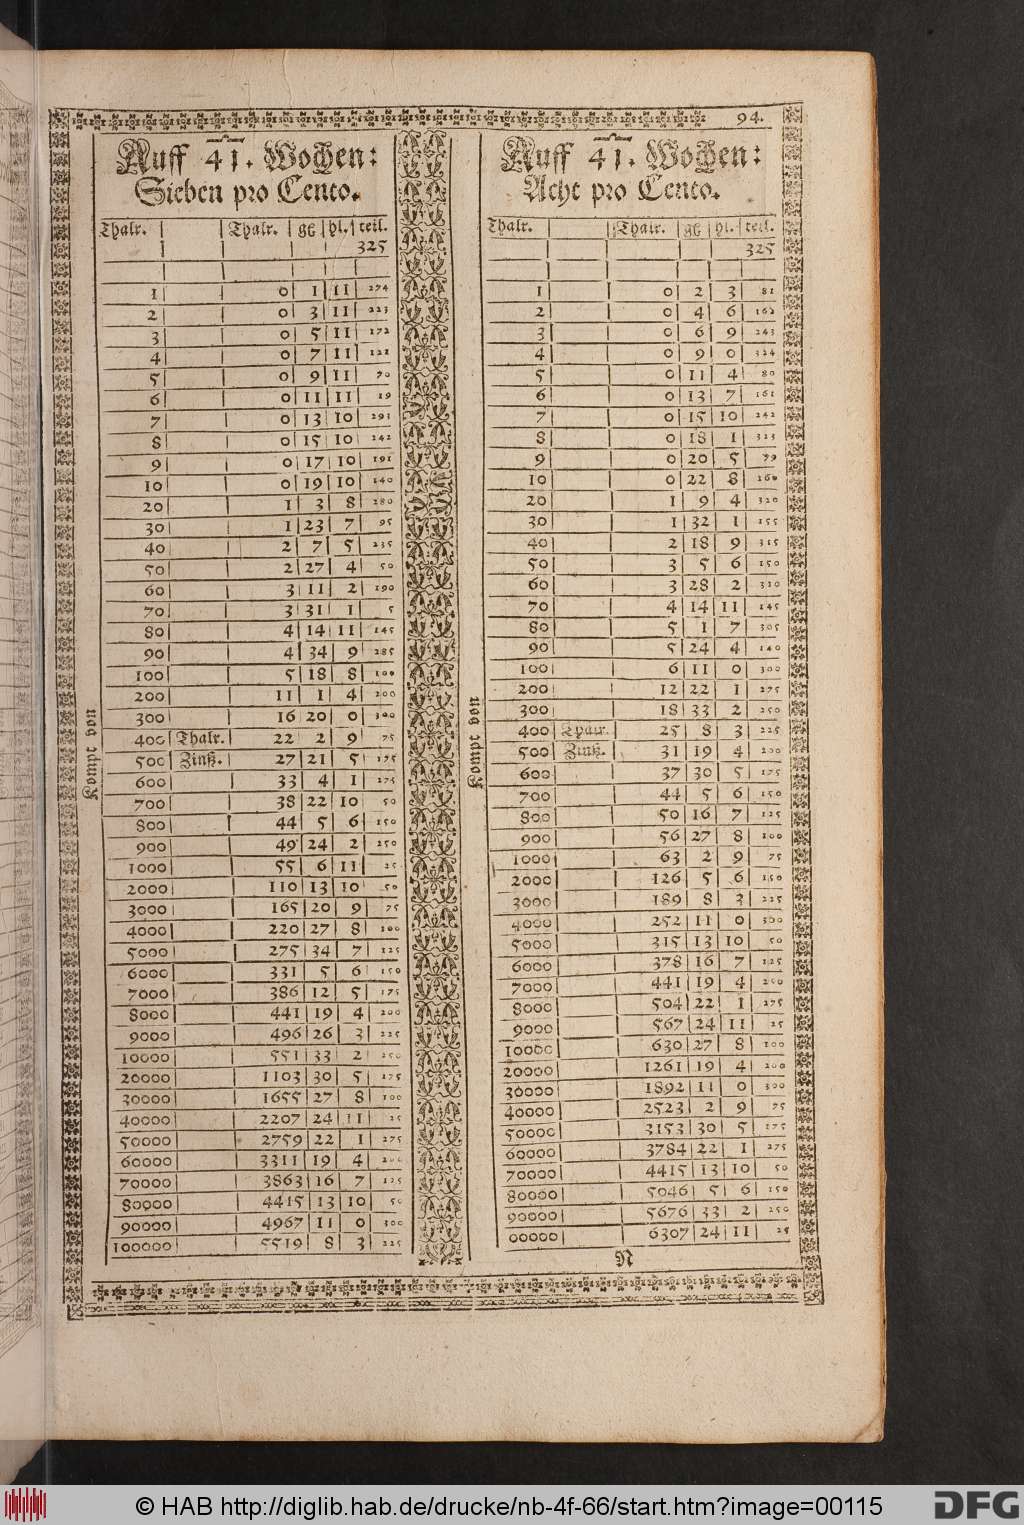 94.
Auff 41. Wochen:
Sieben pro Cento.
Thalr. Thalr. gß hl. teil.
325
1 0 1 11 274
2 0 3 11 223
3 0 5 11 172
4 0 7 11 121
5 0 9 11 70
6 0 11 11 19
7 0 13 10 293
8 0 15 10 242
9 0 17 10 191
10 0 19 10 140
20 1 3 8 280
30 1 23 7 95
40 2 7 5 235
50 2 27 4 50
60 3 11 2 190
70 3 31 1 5
80 4 14 11 145
90 4 34 9 285
100 5 18 8 100
200 11 1 4 200
300 16 20 0 300
400 Thalr. 22 2 9 75
500 Zinß. 27 21 5 175
600 33 4 1 275
700 38 22 10 50
800 44 5 6 150
900 49 24 2 250
1000 55 6 11 25
2000 110 13 10 50
3000 165 20 9 75
4000 220 27 8 100
5000 275 34 7 125
6000 331 5 6 150
7000 386 12 5 175
8000 441 19 4 200
9000 496 26 3 225
10000 551 33 2 250
20000 1103 30 5 175
30000 1655 27 8 100
40000 2207 24 11 25
50000 2759 22 1 275
60000 3311 19 4 200
70000 3863 16 7 125
80000 4415 13 10 50
90000 4967 11 0 300
100000 5519 8 3 225
Kompt von
Auff 41. Wochen:
Acht pro Cento.
Thalr. Thalr. gß hl. teil.
325
1 0 2 3 81
2 0 4 6 162
3 0 6 9 243
4 0 9 0 324
5 0 11 4 80
6 0 13 7 161
7 0 15 10 242
8 0 18 1 323
9 0 20 5 79
10 0 22 8 160
20 1 9 4 320
30 1 32 1 155
40 2 18 9 315
50 3 5 6 150
60 3 28 2 310
70 4 14 11 145
80 5 1 7 305
90 5 24 4 140
100 6 11 0 300
200 12 22 1 275
300 18 33 2 250
400 Thalr. 25 8 3 225
500 Zinß. 31 19 4 200
600 37 30 5 175
700 44 5 6 150
800 50 16 7 125
900 56 27 8 100
1000 63 2 9 75
2000 126 5 6 150
3000 189 8 3 225
4000 252 11 0 300
5000 315 13 10 50
6000 378 16 7 125
7000 441 19 4 200
8000 504 22 1 275
9000 567 24 11 25
10000 630 27 8 100
20000 1261 19 4 200
30000 1892 11 0 300
40000 2523 2 9 75
50000 3153 30 5 175
60000 3784 22 1 275
70000 4415 13 10 50
80000 5046 5 6 150
90000 5676 33 2 250
00000 6307 24 11 25
Kompt von
N
© HAB http://diglib.hab.de/drucke/nb-4f-66/start.htm?image=00115
DFG